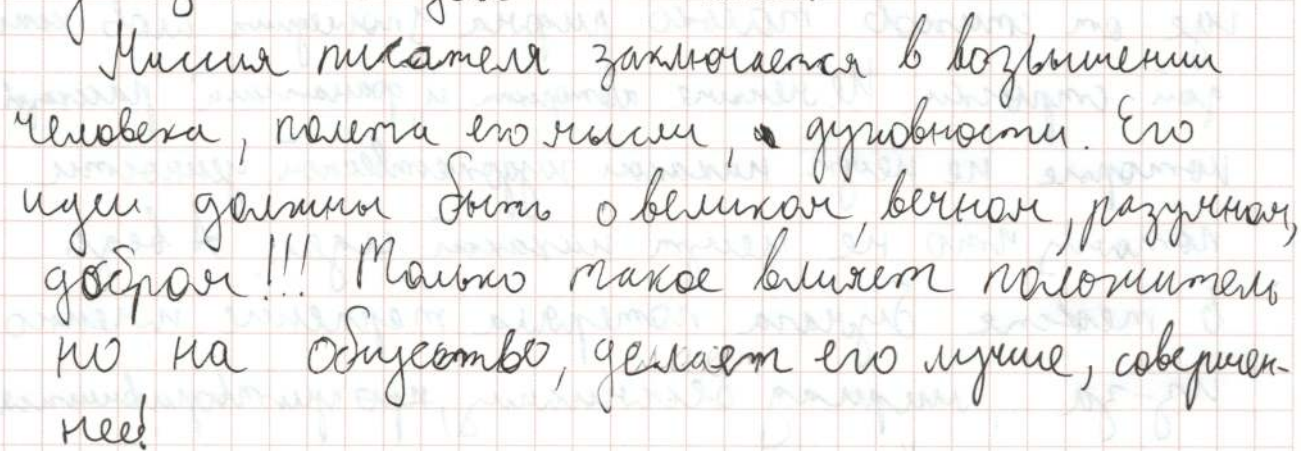 Миссия писателя заключается в возвышении
человека, полета его мысли, духовности. Его
идеи должны быть о великом, вечном, разумном,
добром!!! Только такое влияет положитель
но на общество, делает его лучше, совершен-
нее!